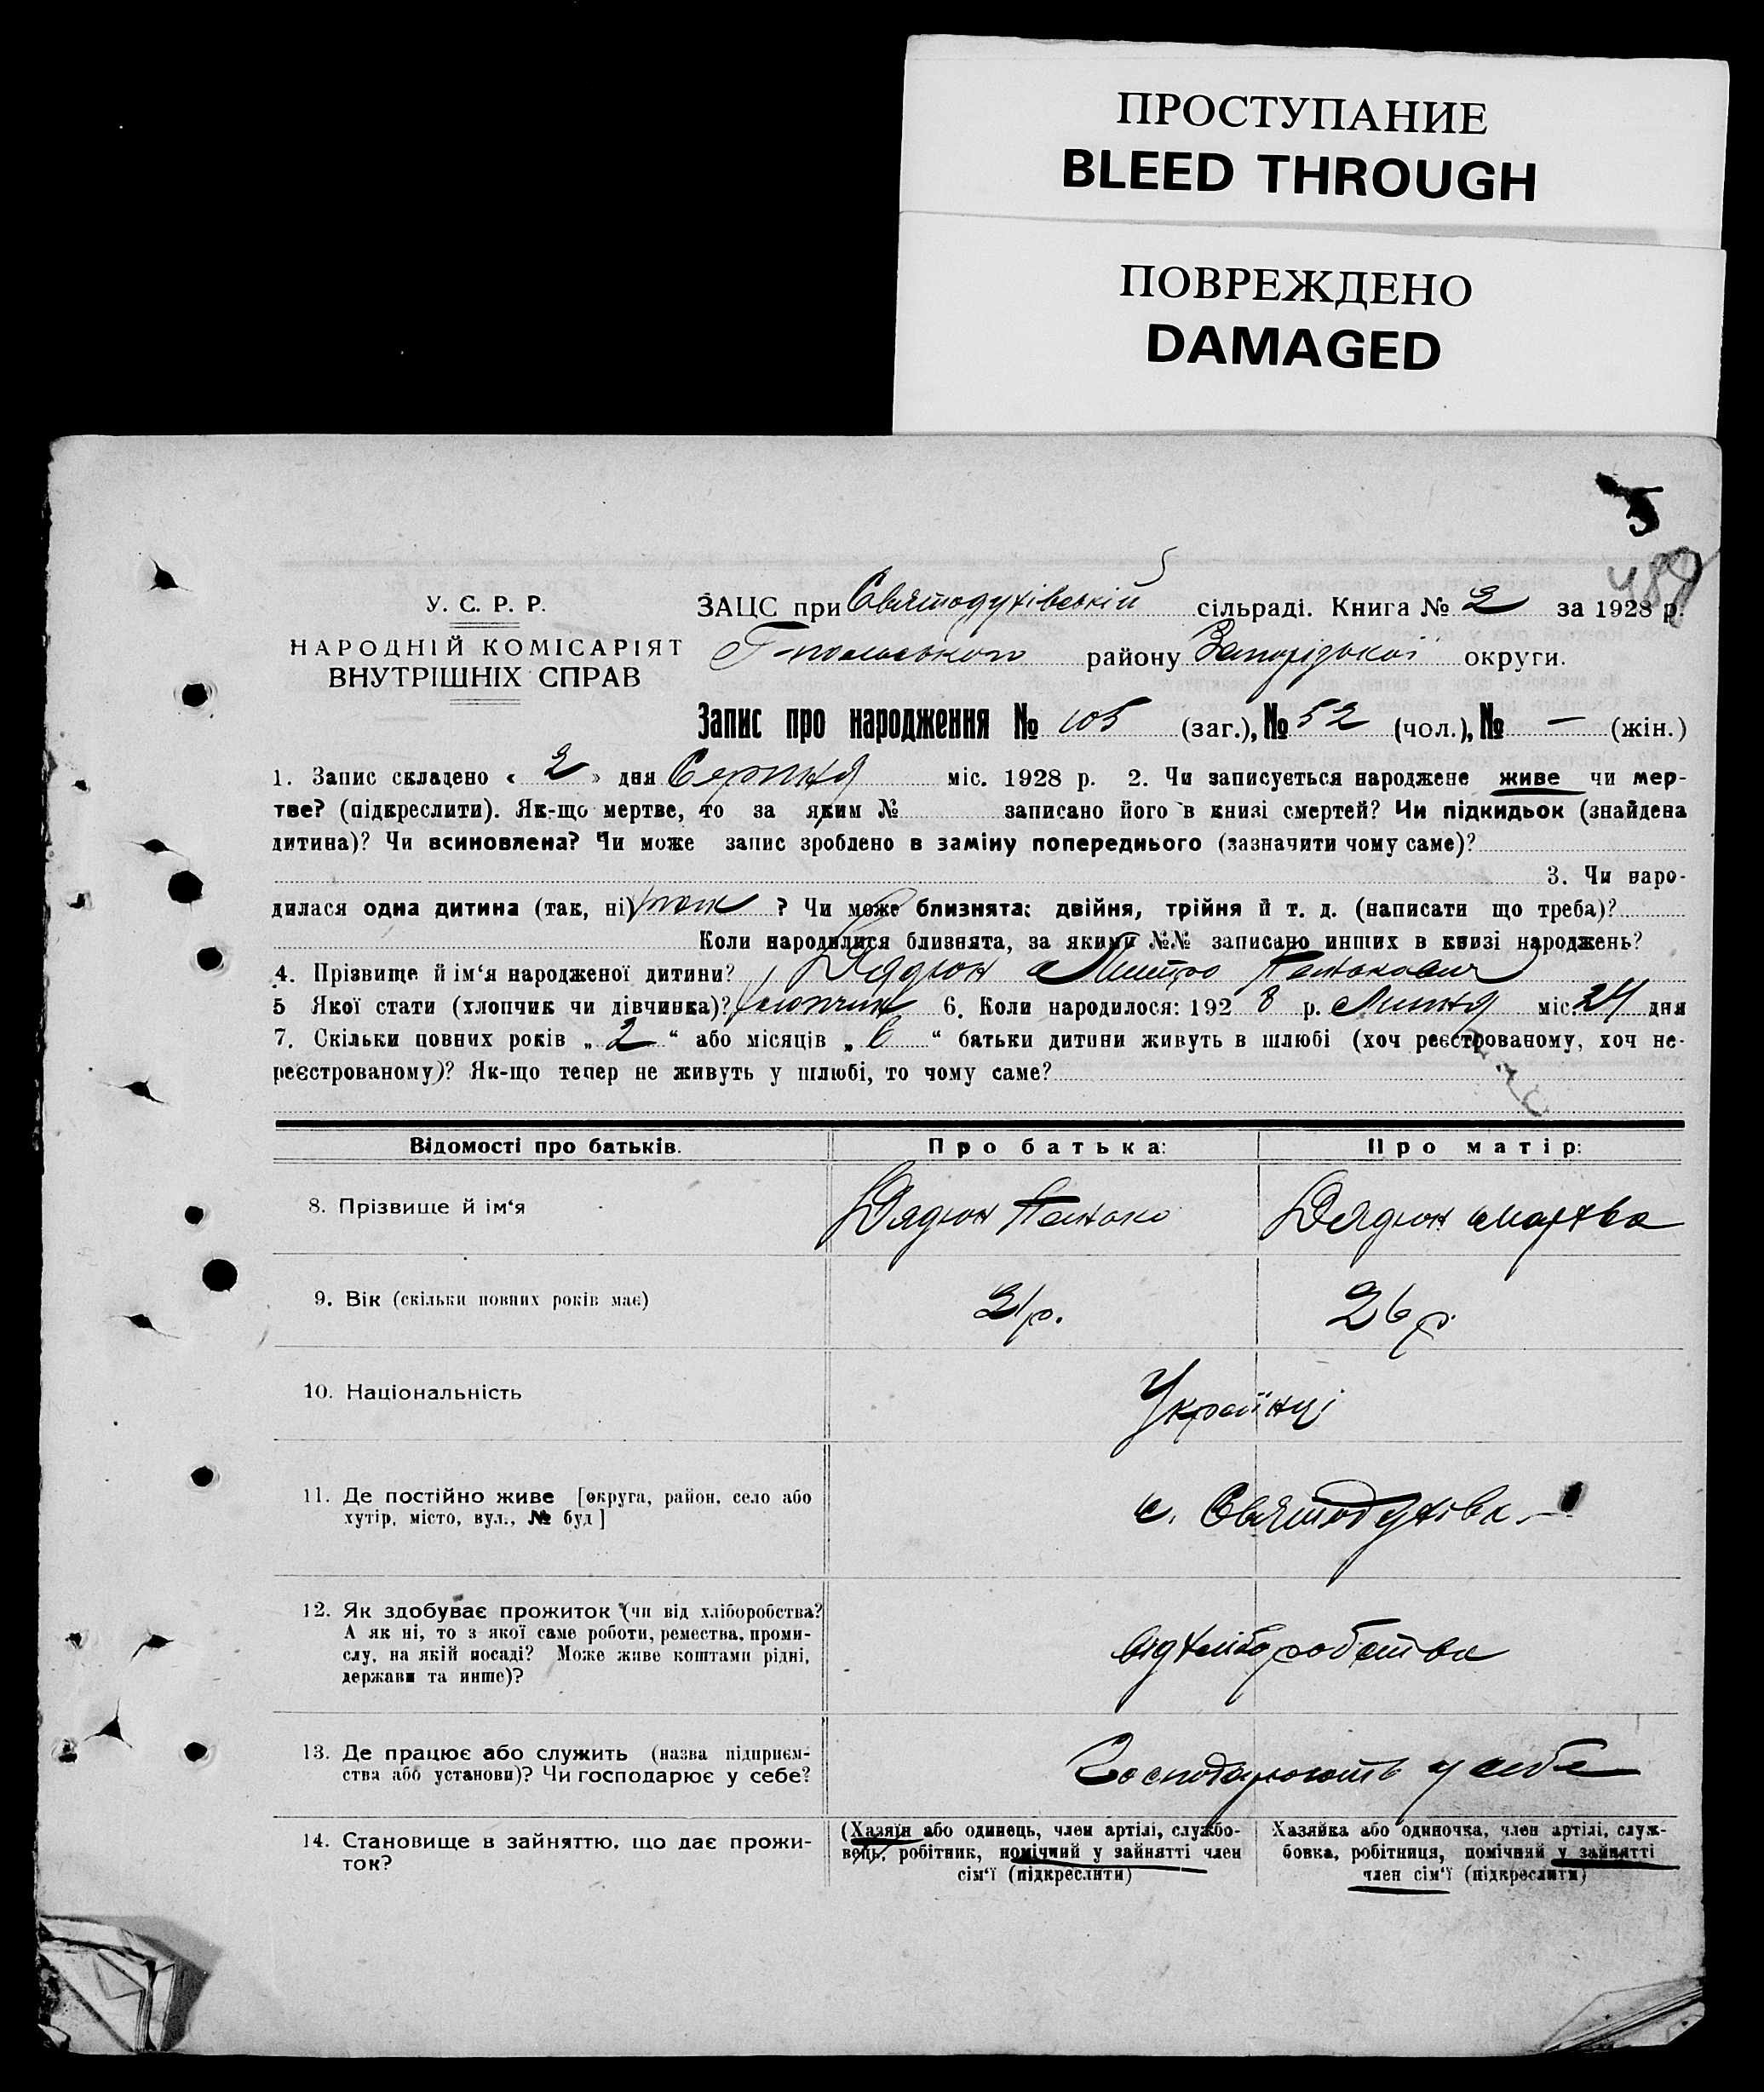 ПРОСТУПАНИЕ
BLEED THROUGH
ПОВРЕЖДЕНО
DAMAGED
5
489
У. С. Р. Р.
НАРОДНІЙ КОМІСАРІЯТ
ВНУТРІШНІХ СПРАВ
ЗАЦС при Святодухівській сільраді. Книга № 2 за 1928 р.
Г-польського району Запорізької округи.
Запис про народження № 105 (заг.), № 52 (чол.), № — (жін.)
1. Запис складено « 2 » дня Серпня міс. 1928 р. 2. Чи записується народжене живе чи мер-
тве? (підкреслити). Як-що мертве, то за яким № записано його в книзі смертей? Чи підкидьок (знайдена
дитина)? Чи всиновлена? Чи може запис зроблено в заміну попереднього (зазначити чому саме)?
3. Чи наро-
дилася одна дитина (так, ні) так ? Чи може близнята: двійня, трійня й т. д. (написати що треба)?
Коли народилися близнята, за якими №№ записано инших в книзі народжень?
4. Прізвище й ім‘я народженої дитини? Дядюн Дмитро Панькович
5 Якої стати (хлопчик чи дівчинка)? хлопчик 6. Коли народилося: 192 8 р. Липня міс. 24 дня
7. Скільки повних років „ 2 “ або місяців „ “ батьки дитини живуть в шлюбі (хоч реєстрованому, хоч не-
реєстрованому)? Як-що тепер не живуть у шлюбі, то чому саме?
Відомості про батьків.
Про батька:
Про матір:
8. Прізвище й ім‘я
Дядюн Панько
Дядюн
9. Вік (скільки повних років має)
р.
26 р.
10. Національність
Українці
11. Де постійно живе [округа, район, село або
хутір, місто, вул., № буд]
с. Святодухівка
12. Як здобуває прожиток (чи від хліборобства?
А як ні, то з якої саме роботи, ремества, проми-
слу, на якій посаді? Може живе коштами рідні,
держави та инше)?
від хліборобства
13. Де працює або служить (назва підприєм-
ства або установи)? Чи господарює у себе?
Господарюють у себе
14. Становище в зайняттю, що дає прожи-
ток?
(Хазяїн або одинець, член артілі, службо-
вець, робітник, помічний у зайнятті член
сім‘ї (підкреслити)
Хазяйка або одиночка, член артілі, служ-
бовка, робітниця, помічний у зайнятті
член сім‘ї (підкреслити)